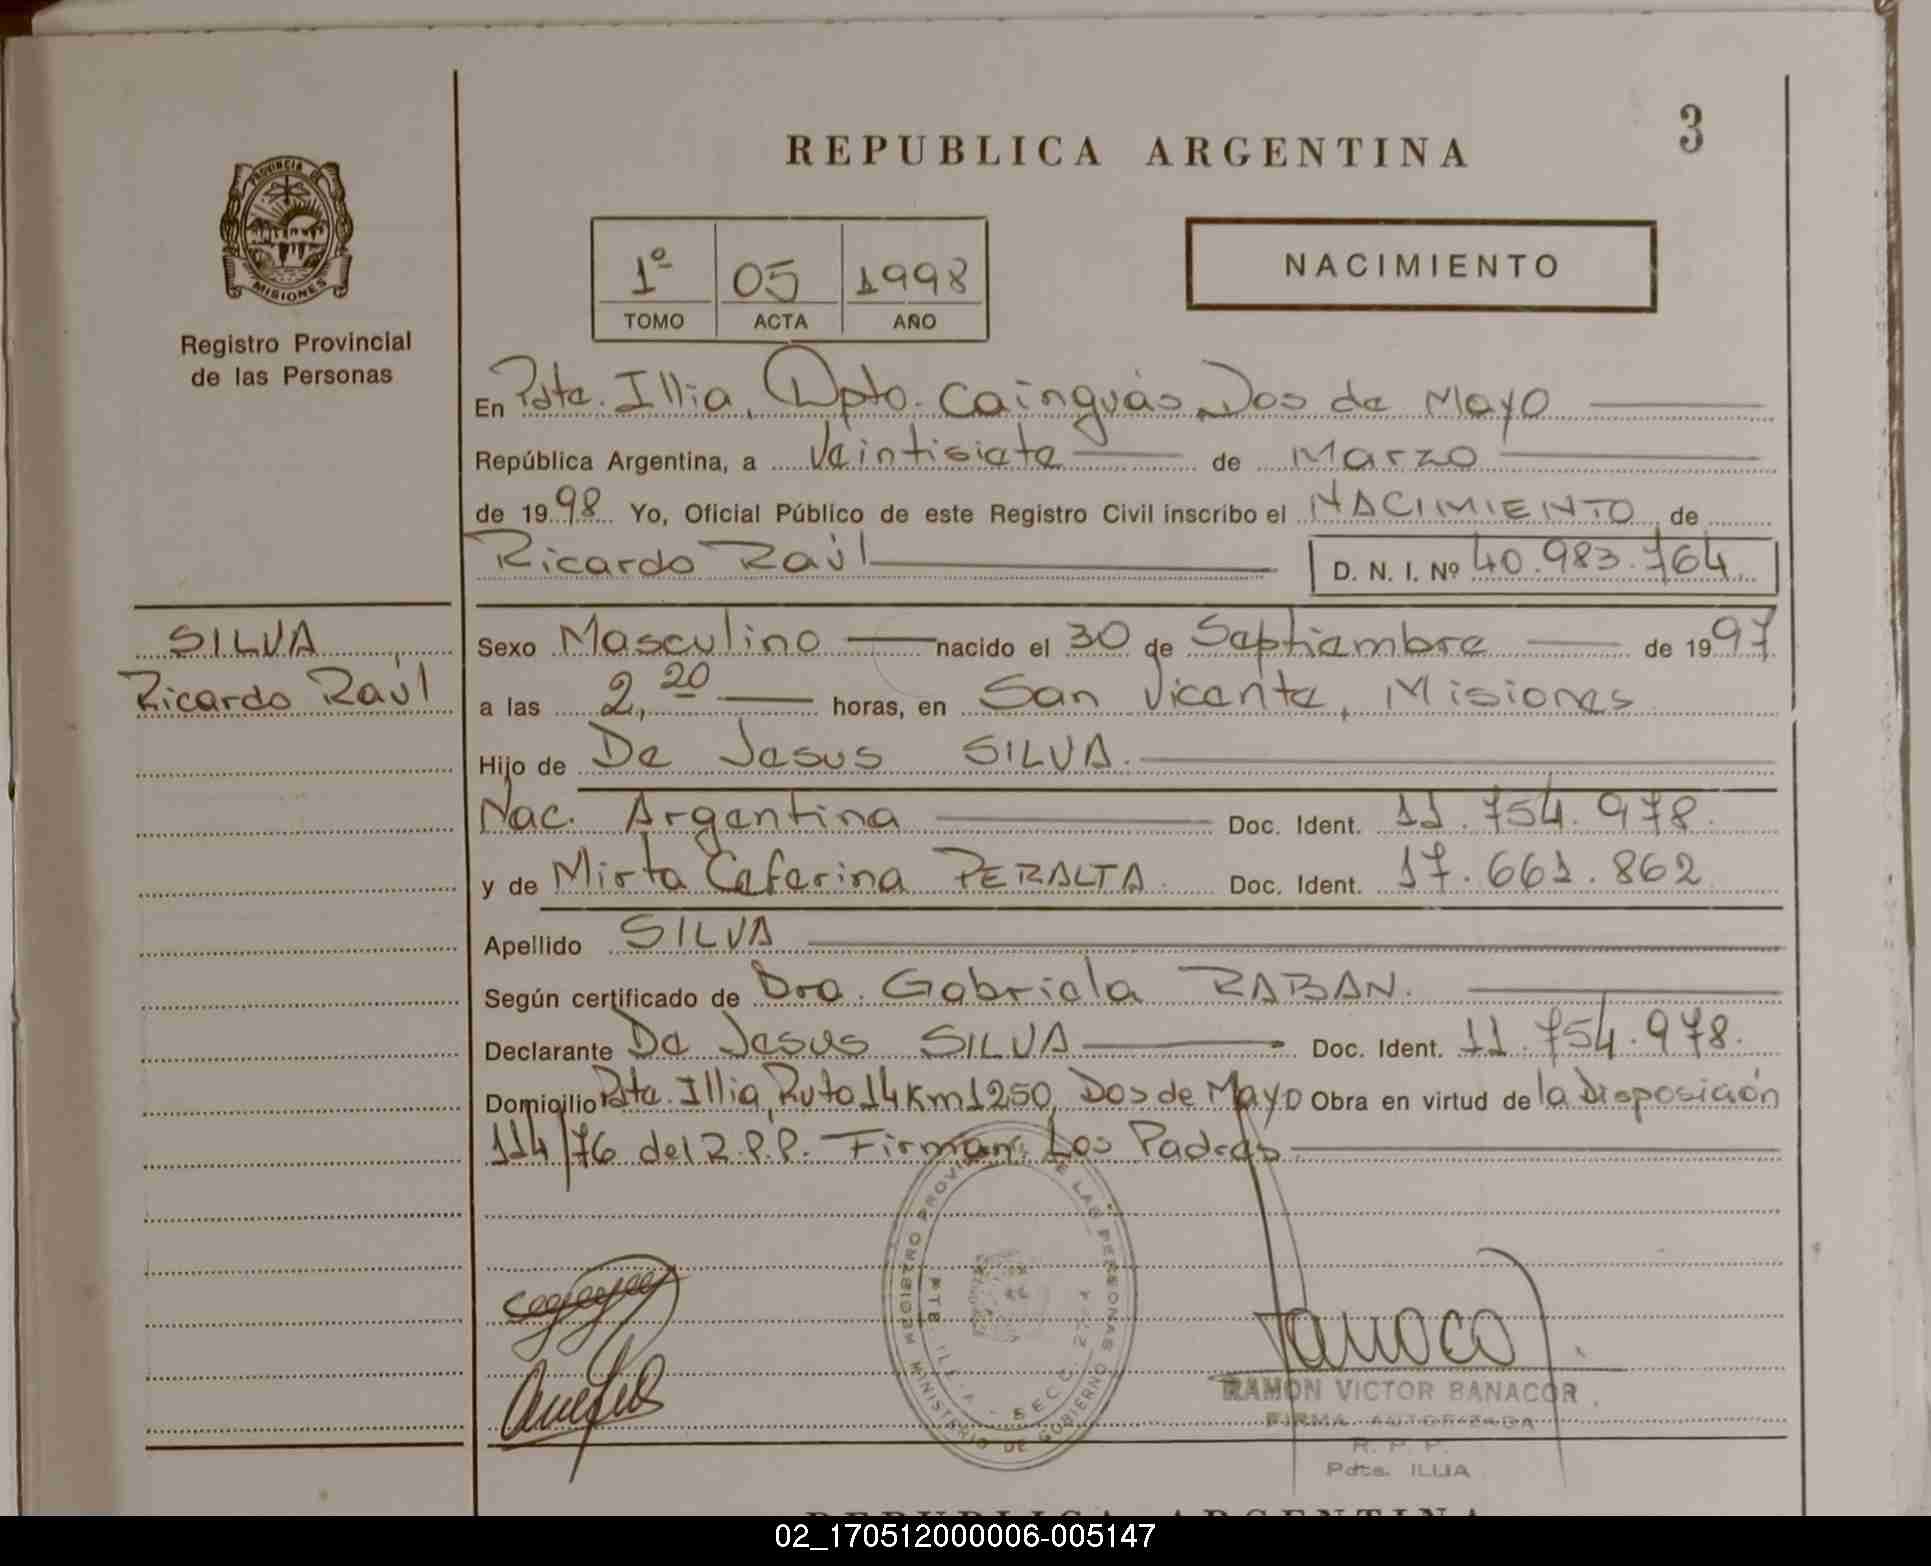 3
REPUBLICA ARGENTINA
PROVINCIA DE
MISIONES
Registro Provincial
de las Personas
1º 05 1998
TOMO ACTA AÑO
NACIMIENTO
En Pdte. Illia, Dpto. Cainguás, Dos de Mayo
República Argentina, a Veintisiete de Marzo
de 1998 Yo, Oficial Público de este Registro Civil inscribo el NACIMIENTO de
Ricardo Raúl D. N. I. Nº 40.983.764
SILVA
Ricardo Raúl
Sexo Masculino nacido el 30 de Septiembre de 1997
a las 2,20 horas, en San Vicente, Misiones
Hijo de De Jesus SILVA.
Nac. Argentina Doc. Ident. 11.754.978.
y de Mirta Ceferina PERALTA Doc. Ident. 17.661.862
Apellido SILVA
Según certificado de Dra. Gabriela RABAN.
Declarante De Jesus SILVA Doc. Ident. 11.754.978.
Domicilio Pdte. Illia, Ruta 14 Km 1250, Dos de Mayo Obra en virtud de la Disposición
114/76 del R.P.P. Firman: Los Padres
REGISTRO PROVINCIAL DE LAS PERSONAS
MINISTERIO DE GOBIERNO
RAMON VICTOR BANACOR
FIRMA AUTORIZADA
R. P. P.
Pdte. ILLIA
REPUBLICA ARGENTINA
02_170512000006-005147